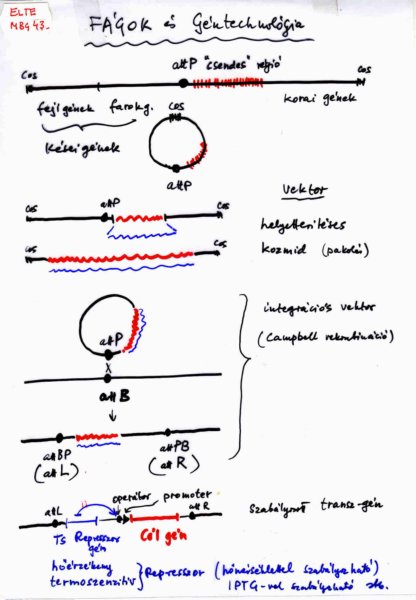 ELTE
MBG 43.
FÁGOK és Géntechnológia
attP "csendes" régió
cos cos
fejgének farokg. korai gének
Kései gének
cos
attP
Vektor
cos attP cos
helyettesítéses
cos cos
kozmid (pakolás)
attP
integrációs vektor
(Campbell rekombináció)
X
attB
attBP attPB
(attL) (attR)
operátor promoter
attL attR
szabályozott transz-gén
Ts Represszor Cél gén
gén
hőérzékeny
termoszenzitív } Represszor (hőmérséklettel szabályozható)
IPTG-vel szabályozható stb.